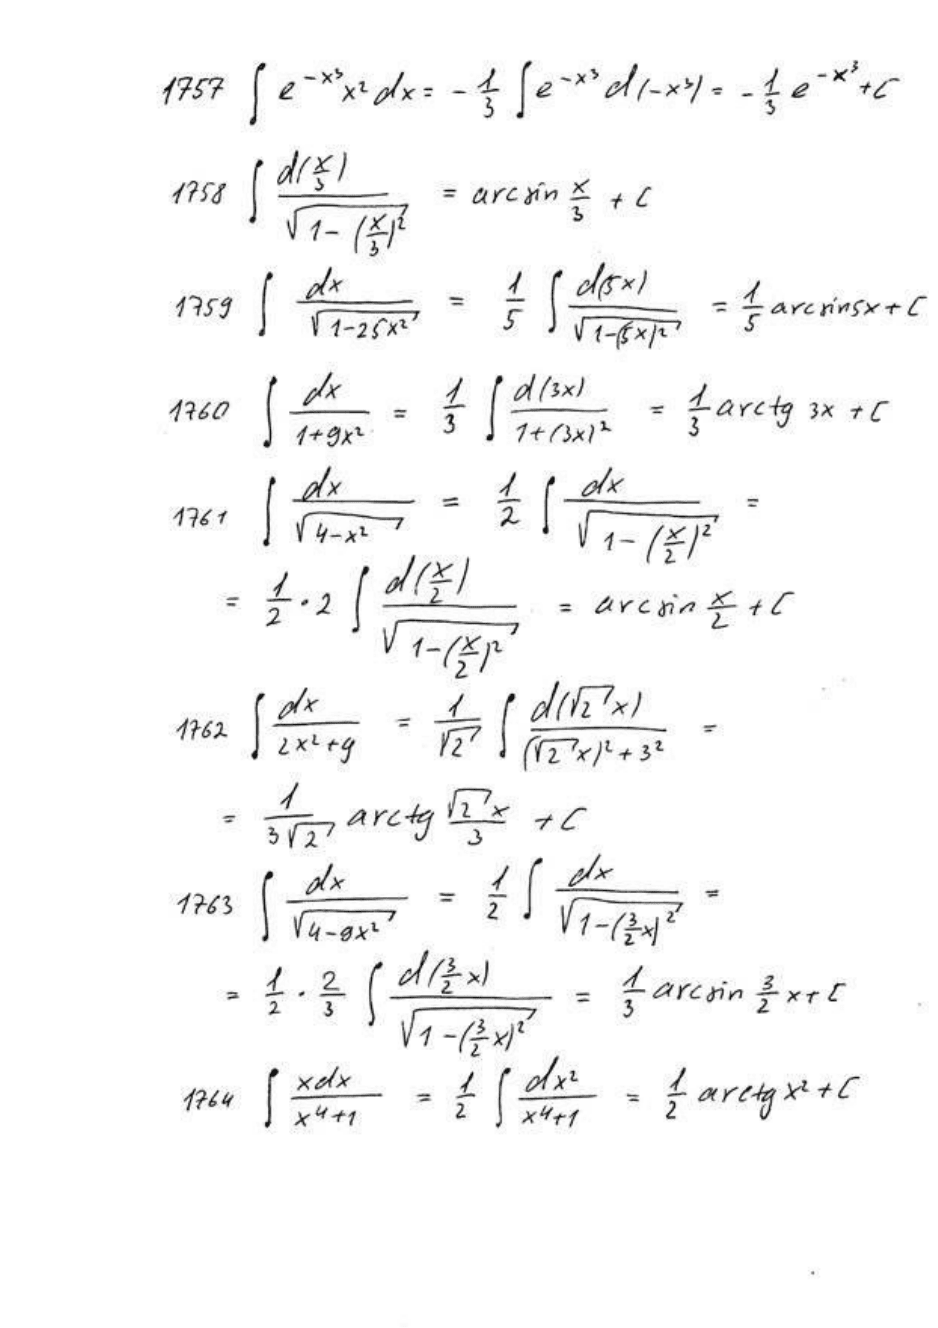 1757 ∫ e^{-x³} x² dx = - 1/3 ∫ e^{-x³} d(-x³) = - 1/3 e^{-x³} + C
1758 ∫ d(x/3) / √(1 - (x/3)²) = arcsin x/3 + C
1759 ∫ dx / √(1-25x²) = 1/5 ∫ d(5x) / √(1-(5x)²) = 1/5 arcsin5x + C
1760 ∫ dx / (1+9x²) = 1/3 ∫ d(3x) / (1+(3x)²) = 1/3 arctg 3x + C
1761 ∫ dx / √(4-x²) = 1/2 ∫ dx / √(1 - (x/2)²) =
= 1/2 · 2 ∫ d(x/2) / √(1-(x/2)²) = arcsin x/2 + C
1762 ∫ dx / (2x²+9) = 1/√2 ∫ d(√2 x) / ((√2 x)² + 3²) =
= 1/(3√2) arctg √2 x / 3 + C
1763 ∫ dx / √(4-9x²) = 1/2 ∫ dx / √(1-(3/2 x)²) =
= 1/2 · 2/3 ∫ d(3/2 x) / √(1-(3/2 x)²) = 1/3 arcsin 3/2 x + C
1764 ∫ xdx / (x⁴+1) = 1/2 ∫ dx² / (x⁴+1) = 1/2 arctg x² + C